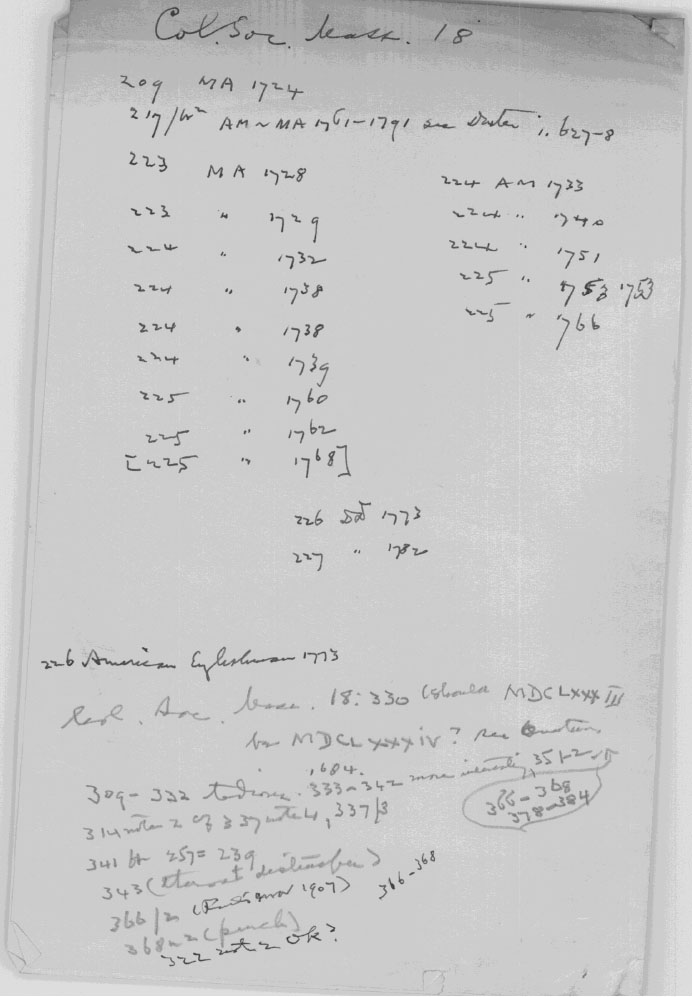 Col. Soc. Mass. 18
209 MA 1724
217/ AM ~ MA 1761-1791 see i, 627-8
223 MA 1728
224 AM 1733
223 " 1729
224 " 1740
224 " 1732
224 " 1751
224 " 1738
225 " 1753 1753
224 " 1738
225 " 1766
224 " 1739
225 " 1760
225 " 1762
[225 " 1768]
226 1773
227 " 1782
226 American Englishman 1773
Col. Soc. Mass. 18:330 (should MDCLXXXIII
be MDCLXXXIV? see
1684.
309-332 333-342 more 351-2
366-368
378-384
314 note 2 cf 337 note 4, 337/3
341 257 = 239
343 (
366/2 ( 1907) 366-368
368 n 2 (punch)
322 note 2 OK?